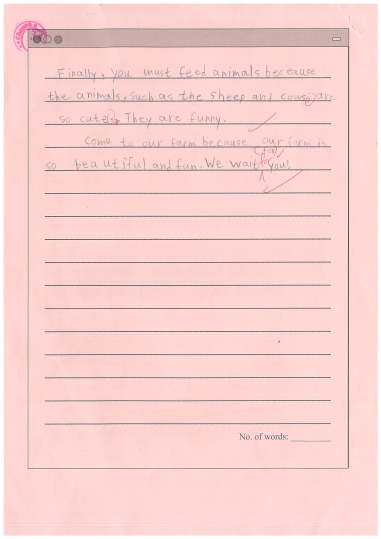 Finally, you must feed animals because
the animals, such as the sheep and cows, are
so cute. They are funny.
Come to our farm because our farm is
so beautiful and fun. We wait for you!
No. of words: